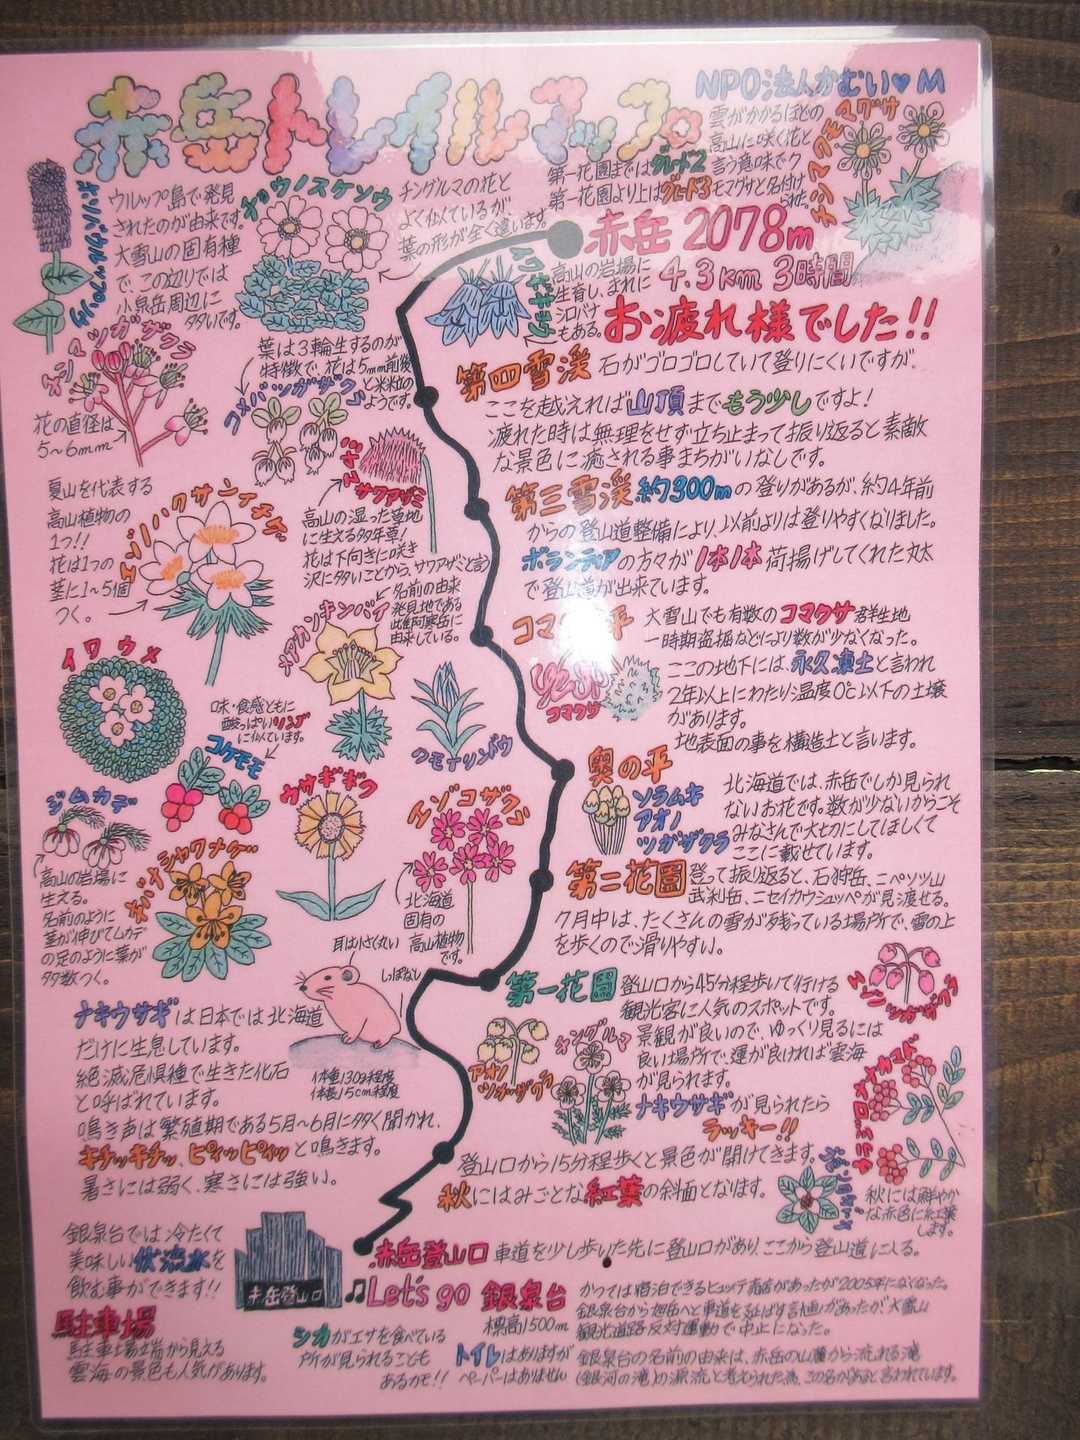 赤岳トレイルマップ
NPO法人かむい♥M
第一花園まではグレード2
第一花園より上はグレード3
チシマクモマグサ
雲がかかるほどの
高山に咲く花と
言う意味でク
モマグサと名付け
られた。
赤岳 2078m
4.3Km 3時間
お疲れ様でした!!
ホソバウルップソウ
ウルップ島で発見
されたのが由来です。
大雪山の固有種
で、この辺りでは
小泉岳周辺に
多いです。
チョウノスケソウ
チングルマの花と
よく似ているが、
葉の形が全く違います。
イワギキョウ
高山の岩場に
生育し、まれに
シロバナ
もある。
ツガザクラ
花の直径は
5〜6mm
コメバツガザクラ
葉は3輪生するのが
特徴で、花は5mm前後
と米粒の
ようです。
第四雪渓 石がゴロゴロしていて登りにくいですが、
ここを越えれば山頂までもう少しですよ!
疲れた時は無理をせず立ち止まって振り返ると素敵
な景色に癒される事まちがいなしです。
エゾノハクサンイチゲ
夏山を代表する
高山植物の
1つ!!
花は1つの
茎に1〜5個
つく。
サワアザミ
高山の湿った草地
に生える多年草!
花は下向きに咲き
沢に多いことから、サワアザミと言う
第三雪渓 約300mの登りがあるが、約4年前
からの登山道整備により、以前よりは登りやすくなりました。
ボランティアの方々が1本1本荷揚げしてくれた丸太
で登山道が出来ています。
メアカンキンバイ
名前の由来
発見地である
雌阿寒岳に
由来している。
コマクサ平 大雪山でも有数のコマクサ群生地
一時期盗掘などにより数が少なくなった。
ここの地下には、永久凍土と言われ
2年以上にわたり温度0℃以下の土壌
があります。
地表面の事を構造土と言います。
コマクサ
イワウメ
クモイリンドウ
コケモモ
味・食感ともに
酸っぱいリンゴ
に似ています。
奥の平
ソラムキ
アオノ
ツガザクラ
北海道では、赤岳でしか見られ
ないお花です。数が少ないからこそ
みなさんで大切にしてほしくて
ここに載せています。
ジムカデ
高山の岩場に
生える。
名前のように
茎が伸びてムカデ
の足のように葉が
多数つく。
ウサギギク
エゾコザクラ
北海道
固有の
高山植物
です。
キバナシャクナゲ
第二花園 登って振り返ると、石狩岳、ニペソツ山
武利岳、ニセイカウシュッペが見渡せる。
7月中は、たくさんの雪が残っている場所で、雪の上
を歩くので滑りやすい。
第一花園 登山口から45分程歩いて行ける
観光客に人気のスポットです。
景観が良いので、ゆっくり見るには
良い場所で、運が良ければ雲海
が見られます。
ナキウサギが見られたら
ラッキー!!
エゾノツガザクラ
アオノ
ツガザクラ
チングルマ
耳は小さく丸い
しっぽなし
体重130g程度
体長15cm程度
ナキウサギは日本では北海道
だけに生息しています。
絶滅危惧種で生きた化石
と呼ばれています。
鳴き声は繁殖期である5月〜6月に多く聞かれ、
キチッキチッ、ピィッピィッと鳴きます。
暑さには弱く、寒さには強い。
登山口から15分程歩くと景色が開けてきます。
秋にはみごとな紅葉の斜面となります。
ウラジロナナカマド
秋には鮮やか
な赤色に紅葉
します。
銀泉台では冷たくて
美味しい伏流水を
飲む事ができます!!
赤岳登山口
赤岳登山口 車道を少し歩いた先に登山口があり、ここから登山道に入る。
♫Let's go 銀泉台
標高1500m
かつては宿泊できるヒュッテ、売店があったが2005年になくなった。
銀泉台から旭岳へと車道を延ばす計画があったが大雪山
観光道路反対運動で中止になった。
銀泉台の名前の由来は、赤岳の山麓から流れる滝
(銀河の滝)の源流と考えられた為、この名があると言われています。
駐車場
駐車場端から見える
雲海の景色も人気があります。
シカがエサを食べている
所が見られることも
あるカモ!!
トイレはありますが
ペーパーはありません